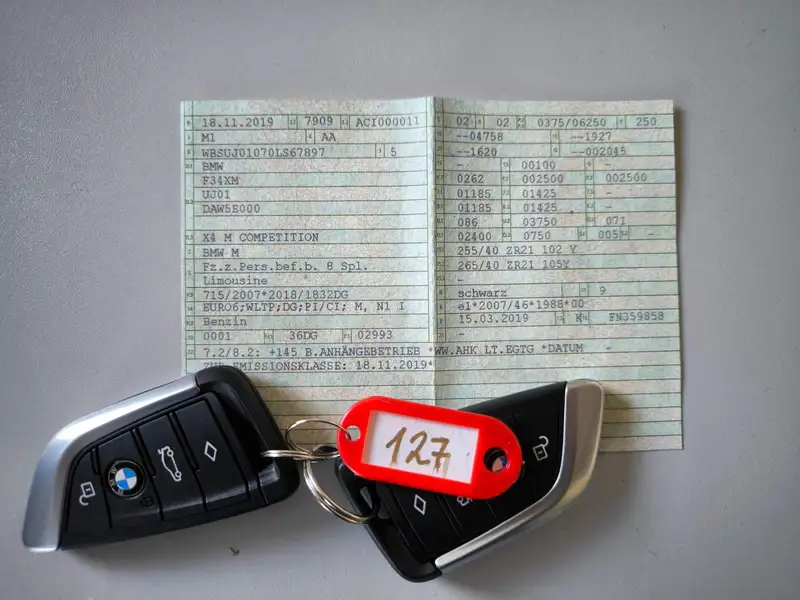 18.11.2019 7909 ACI000011
M1 AA
WBSUJ01070LS67897 5
BMW
F34XM
UJ01
DAW5E000
X4 M COMPETITION
BMW M
Fz.z.Pers.bef.b. 8 Spl.
Limousine
715/2007*2018/1832DG
EURO6;WLTP;DG;PI/CI; M, N1 I
Benzin
0001 36DG 02993
7.2/8.2: +145 B.ANHÄNGEBETRIEB *WW.AHK LT.EGTG *DATUM
ZUR EMISSIONSKLASSE: 18.11.2019*
02 02 0375/06250 250
--04758 --1927
--1620 --002045
- 00100 -
0262 002500 002500
01185 01425 -
01185 01425 -
086 03750 071
02400 0750 -
255/40 ZR21 102 Y
265/40 ZR21 105Y
-
schwarz 9
e1*2007/46*1988*00
15.03.2019 K FN359858
-
127
BMW